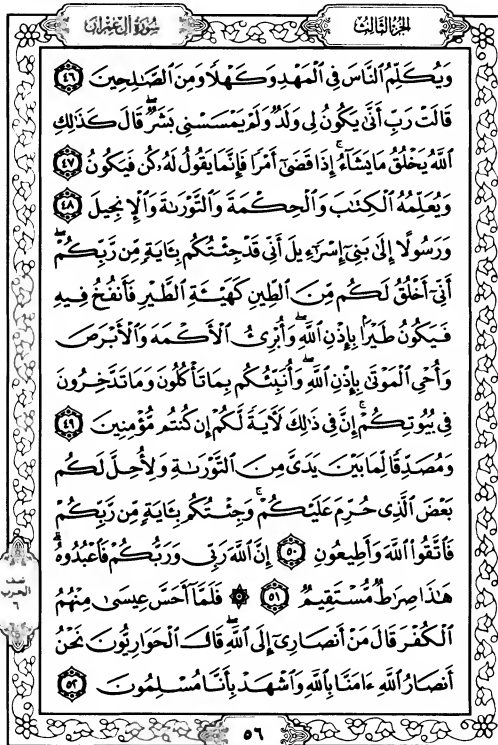 سُورَةُ آلِ عِمْرَانَ
الجزء الثالث
وَيُكَلِّمُ النَّاسَ فِي الْمَهْدِ وَكَهْلًا وَمِنَ الصَّٰلِحِينَ ٤٦
قَالَتْ رَبِّ أَنَّىٰ يَكُونُ لِي وَلَدٌ وَلَمْ يَمْسَسْنِي بَشَرٌ ۖ قَالَ كَذَٰلِكِ
اللَّهُ يَخْلُقُ مَا يَشَاءُ ۚ إِذَا قَضَىٰ أَمْرًا فَإِنَّمَا يَقُولُ لَهُۥ كُن فَيَكُونُ ٤٧
وَيُعَلِّمُهُ الْكِتَٰبَ وَالْحِكْمَةَ وَالتَّوْرَىٰةَ وَالْإِنجِيلَ ٤٨
وَرَسُولًا إِلَىٰ بَنِىٓ إِسْرَٰٓءِيلَ أَنِّى قَدْ جِئْتُكُم بِـَٔايَةٍ مِّن رَّبِّكُمْ ۖ
أَنِّىٓ أَخْلُقُ لَكُم مِّنَ الطِّينِ كَهَيْـَٔةِ الطَّيْرِ فَأَنفُخُ فِيهِ
فَيَكُونُ طَيْرًۢا بِإِذْنِ اللَّهِ ۖ وَأُبْرِئُ الْأَكْمَهَ وَالْأَبْرَصَ
وَأُحْىِ الْمَوْتَىٰ بِإِذْنِ اللَّهِ ۖ وَأُنَبِّئُكُم بِمَا تَأْكُلُونَ وَمَا تَدَّخِرُونَ
فِى بُيُوتِكُمْ ۚ إِنَّ فِى ذَٰلِكَ لَـَٔايَةً لَّكُمْ إِن كُنتُم مُّؤْمِنِينَ ٤٩
وَمُصَدِّقًا لِّمَا بَيْنَ يَدَىَّ مِنَ التَّوْرَىٰةِ وَلِأُحِلَّ لَكُم
بَعْضَ الَّذِى حُرِّمَ عَلَيْكُمْ ۚ وَجِئْتُكُم بِـَٔايَةٍ مِّن رَّبِّكُمْ
فَاتَّقُوا اللَّهَ وَأَطِيعُونِ ٥٠ إِنَّ اللَّهَ رَبِّى وَرَبُّكُمْ فَاعْبُدُوهُ ۗ
هَٰذَا صِرَٰطٌ مُّسْتَقِيمٌ ٥١ ۞ فَلَمَّآ أَحَسَّ عِيسَىٰ مِنْهُمُ
الْكُفْرَ قَالَ مَنْ أَنصَارِىٓ إِلَى اللَّهِ ۖ قَالَ الْحَوَارِيُّونَ نَحْنُ
أَنصَارُ اللَّهِ ءَامَنَّا بِاللَّهِ وَاشْهَدْ بِأَنَّا مُسْلِمُونَ ٥٢
نصف
الحزب
٦
٥٦